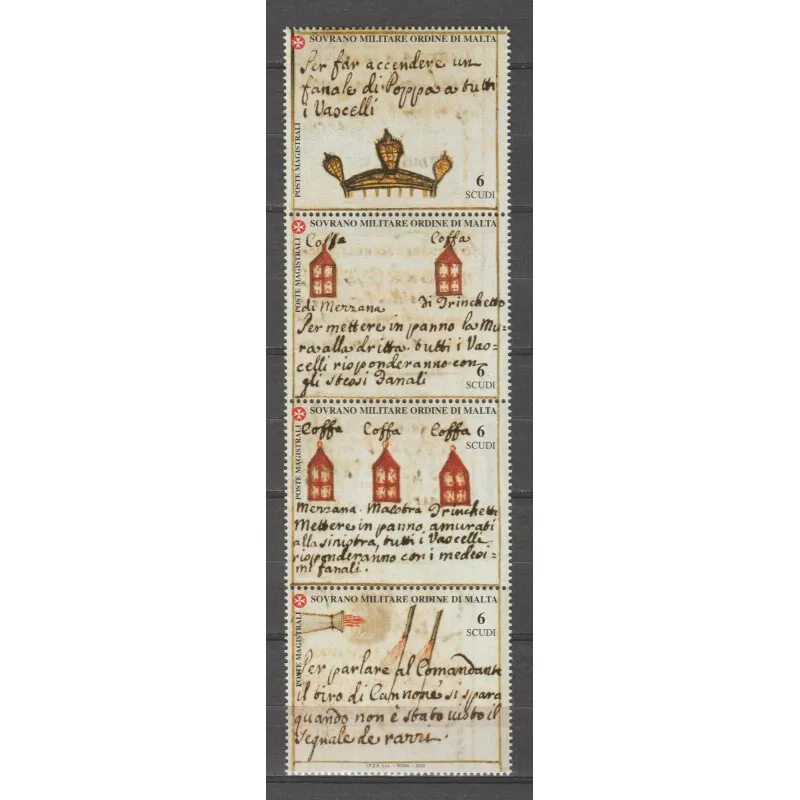 SOVRANO MILITARE ORDINE DI MALTA
Per far accendere un
fanale di Poppa a tutti
i Vascelli
POSTE MAGISTRALI
6
SCUDI
SOVRANO MILITARE ORDINE DI MALTA
Coffa Coffa
POSTE MAGISTRALI
di Mezzana di Trinchetto
Per mettere in panno la Mu-
ra alla dritta tutti i Vas=
celli risponderanno con
gli stessi Fanali
6
SCUDI
SOVRANO MILITARE ORDINE DI MALTA
Coffa Coffa Coffa
6
SCUDI
POSTE MAGISTRALI
Mezzana. Maestra Trinchetto
Mettere in panno amurati
alla sinistra, tutti i Vascelli
risponderanno con i medesi-
mi fanali.
SOVRANO MILITARE ORDINE DI MALTA
6
SCUDI
POSTE MAGISTRALI
Per parlare al Comandante
il tiro di Cannone si spara
quando non è stato visto il
segnale de razzi.
ROMA